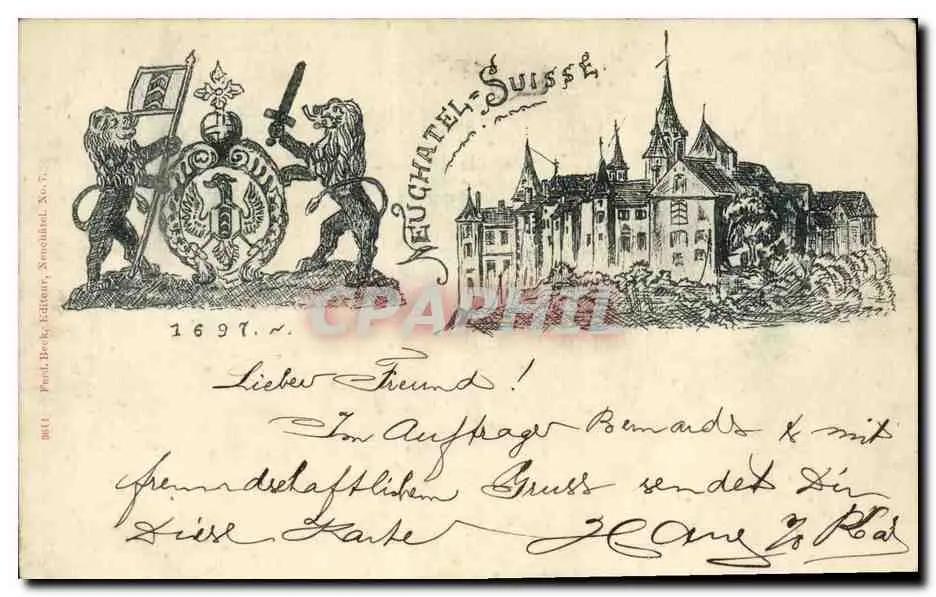 NEUCHATEL-SUISSE.
1697.~.
CPAPHIL
9611 Ferd. Beck, Editeur, Neuchâtel. No. 7.
Lieber Freund!
Im Auftrage Bernards & mit
freundschaftlichem Gruss sendet Dir
Diese Karte